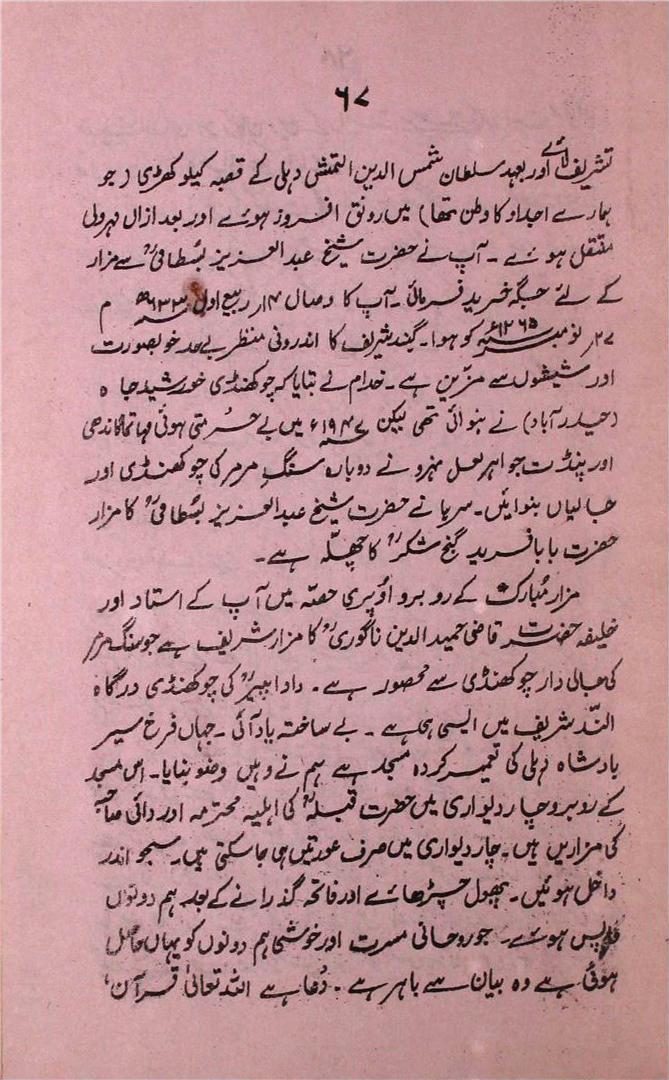 ۶۷
تشریف لائے اور بعہد سلطان شمس الدین التمش دہلی کے قصبہ کیلوکھڑی (جو
ہمارے اجداد کا وطن تھا) میں رونق افروز ہوئے اور بعد ازاں مہرولی
منتقل ہوئے ۔ آپ نے حضرت شیخ عبدالعزیز بسطامیؒ سے مزار
کے لئے جگہ خرید فرمائی ۔ آپ کا وصال ۱۴ر ربیع اول ۶۳۳ھ م
۲۷ر نومبر ۱۲۶۵ء کو ہوا۔ گنبد شریف کا اندرونی منظر بے حد خوبصورت
اور شیشوں سے مزّین ہے ۔ خدام نے بتایا کہ چوکھنڈی خورشید جاہ
(حیدرآباد) نے بنوائی تھی لیکن ۱۹۴۷ء میں بے حُرمتی ہوئی مہاتما گاندھی
اور پنڈت جواہر لعل نہرو نے دوبارہ سنگِ مرمر کی چوکھنڈی اور
جالیاں بنوائیں ۔ سرہانے حضرت شیخ عبدالعزیز بسطامیؒ کا مزار
حضرت بابا فرید گنج شکرؒ کا چھلّہ ہے ۔
مزار مُبارک کے روبرو اُوپری حصّہ میں آپ کے استاد اور
خلیفہ حضرت قاضی حمید الدین ناگوریؒ کا مزار شریف ہے جو سنگ مرمر
کی جالی دار چوکھنڈی سے محصور ہے ۔ دادا پیرؒ کی چوکھنڈی درگاہ
النّد شریف میں ایسی ہی ہے ۔ بے ساختہ یاد آئی ۔ جہاں فرخ سیر
بادشاہ دہلی کی تعمیر کردہ مسجد ہے ہم نے وہیں وضو بنایا ۔ اس مسجد
کے روبرو چار دیواری میں حضرت قبلہؒ کی اہلیہ محترمہ اور دائی صاحبہ
کی مزاریں ہیں ۔ چار دیواری میں صرف عورتیں ہی جاسکتی ہیں ۔ اندر
داخل ہوئیں ۔ پھول چڑھائے اور فاتحہ گذرانے کے بعد ہم دونوں
واپس ہوئے ۔ جو روحانی مسرت اور خوشی ہم دونوں کو یہاں حاصل
ہوئی ہے وہ بیان سے باہر ہے ۔ دُعا ہے اللہ تعالیٰ قرآن،